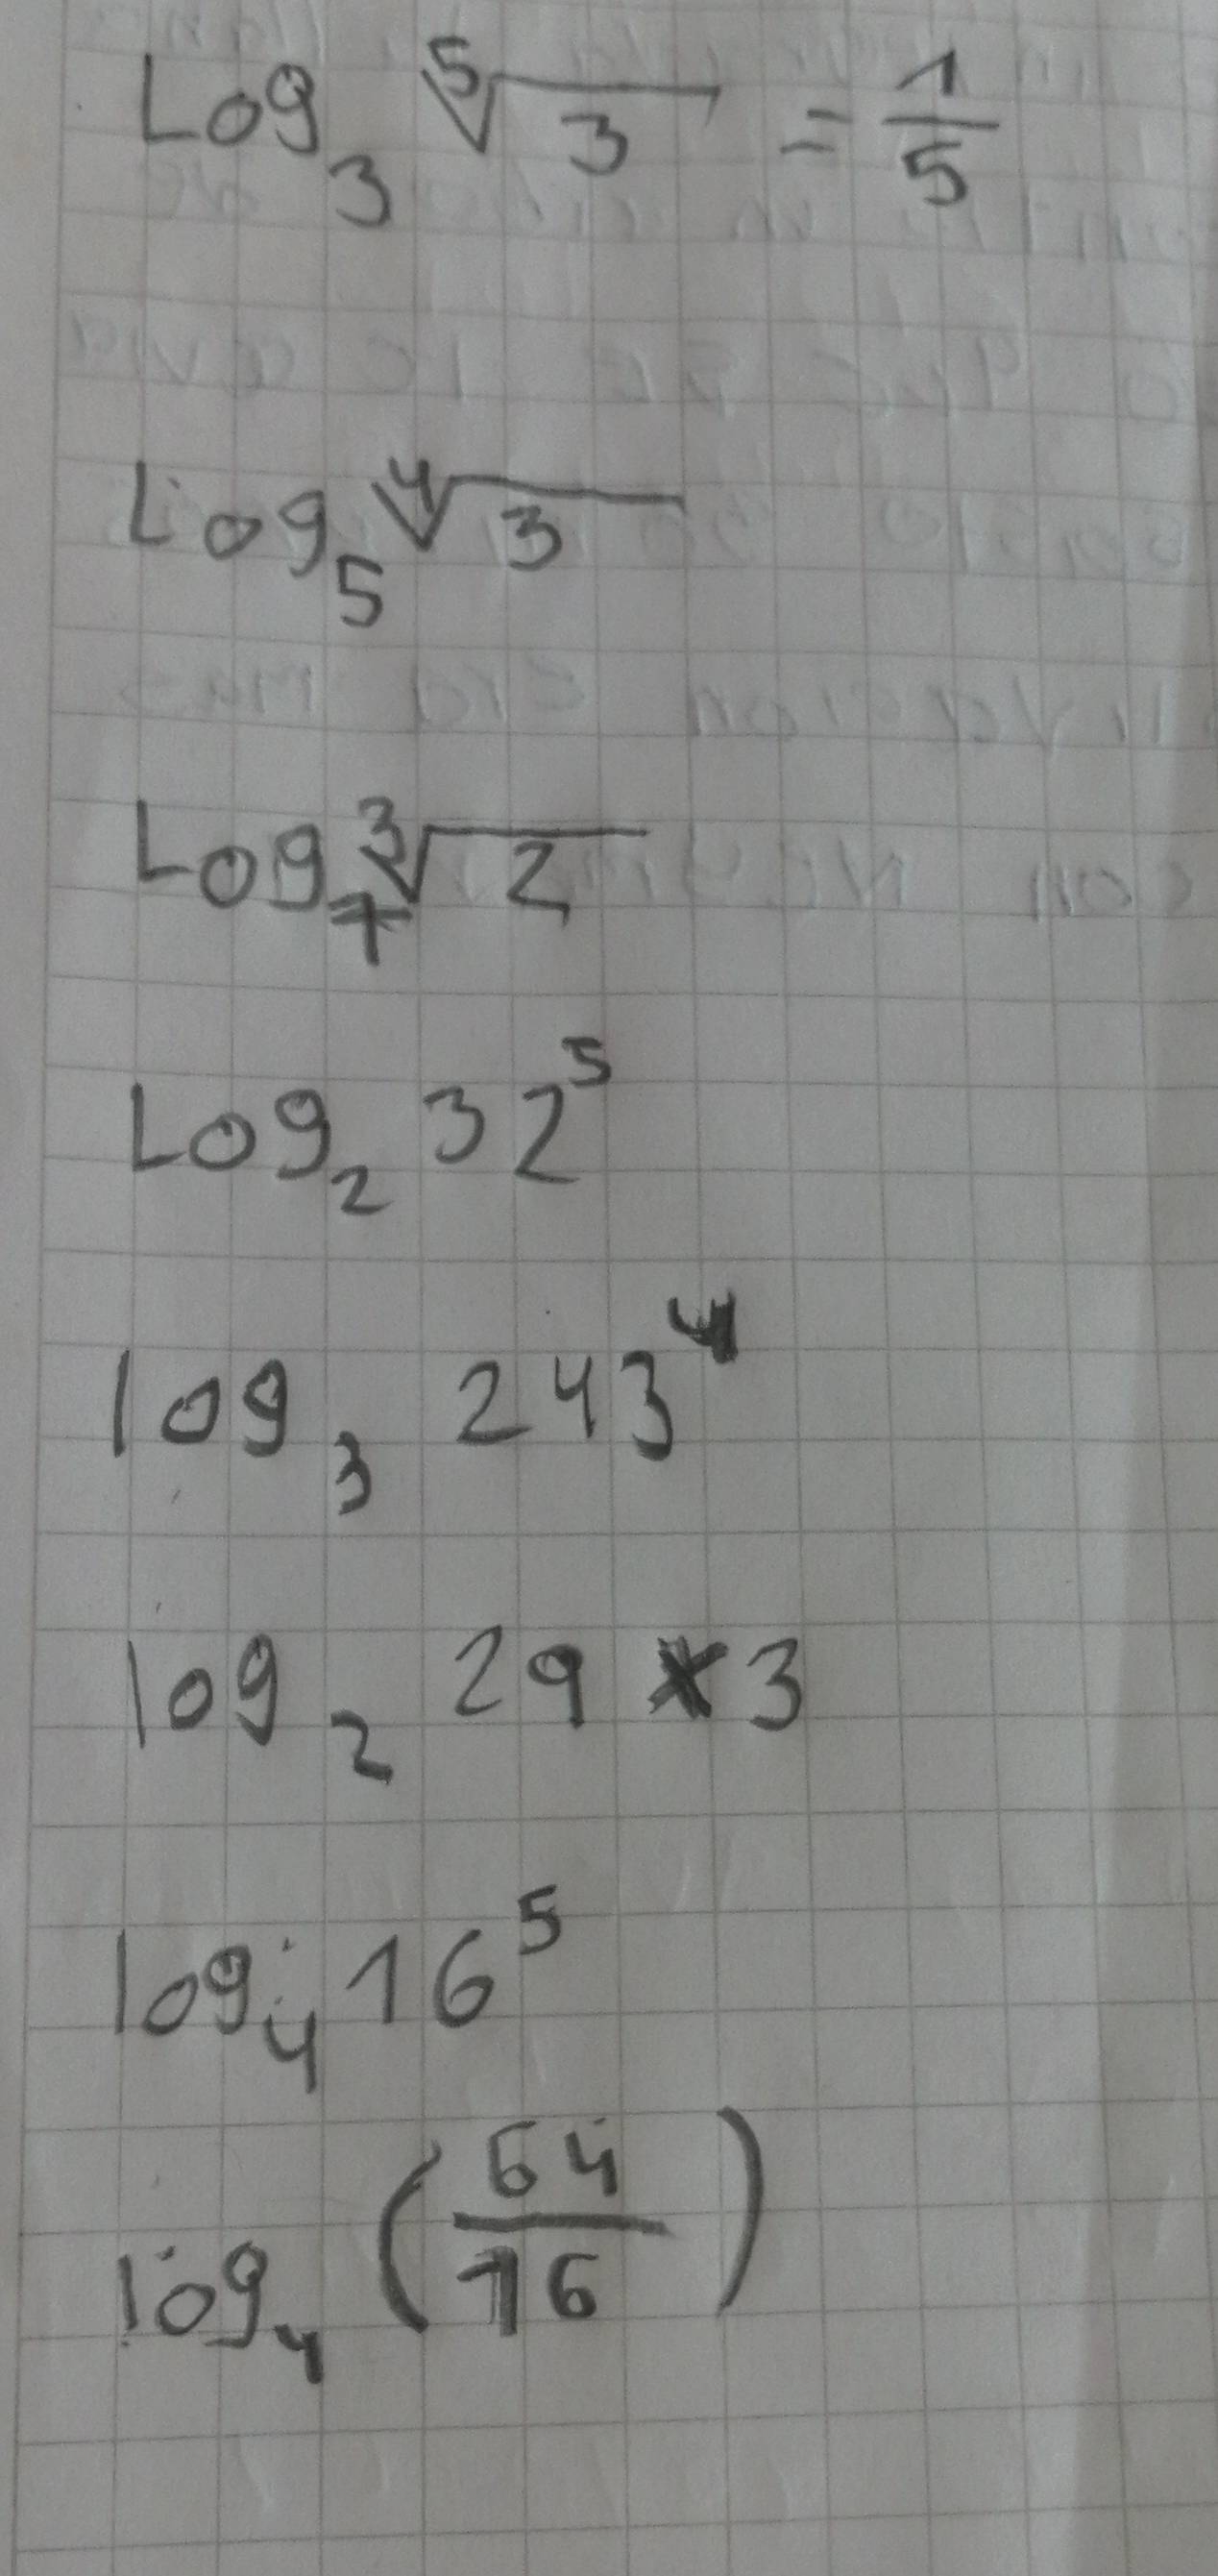 Log₃ ⁵√3 = 1/5
Log₅ ⁴√3
Log₇ ³√2
Log₂ 32⁵
log₃ 243⁴
log₂ 29 * 3
log₄ 16⁵
log₄ (64/16)